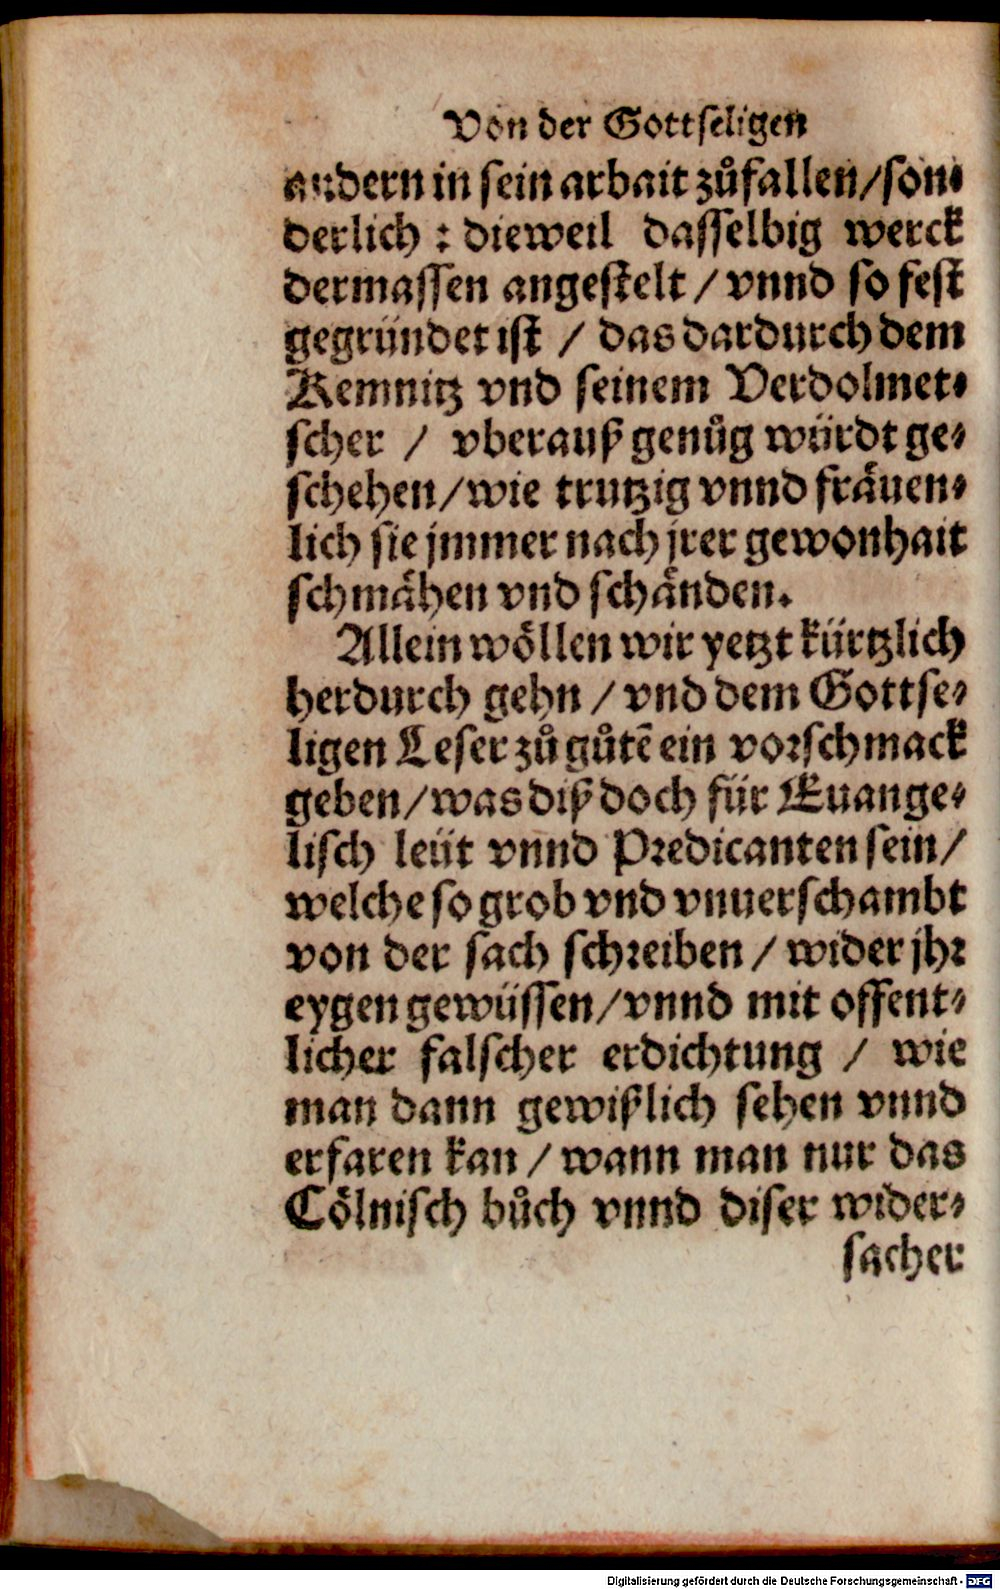 Von der Gottseligen
andern in sein arbait zůfallen/son-
derlich : dieweil dasselbig werck
dermassen angestelt / vnnd so fest
gegründet ist / das dardurch dem
Kemnitz vnd seinem Verdolmet-
scher / vberauß genůg würdt ge-
schehen/wie trutzig vnnd fräuen-
lich sie jmmer nach jrer gewonhait
schmähen vnd schänden.
Allein wöllen wir yetzt kürtzlich
herdurch gehn / vnd dem Gottse-
ligen Leser zů gůtē ein vorschmack
geben/was diß doch für Euange-
lisch leüt vnnd Predicanten sein/
welche so grob vnd vnuerschambt
von der sach schreiben / wider jhr
eygen gewüssen/vnnd mit offent-
licher falscher erdichtung / wie
man dann gewißlich sehen vnnd
erfaren kan / wann man nur das
Cölnisch bůch vnnd diser wider-
sacher
Digitalisierung gefördert durch die Deutsche Forschungsgemeinschaft - DFG